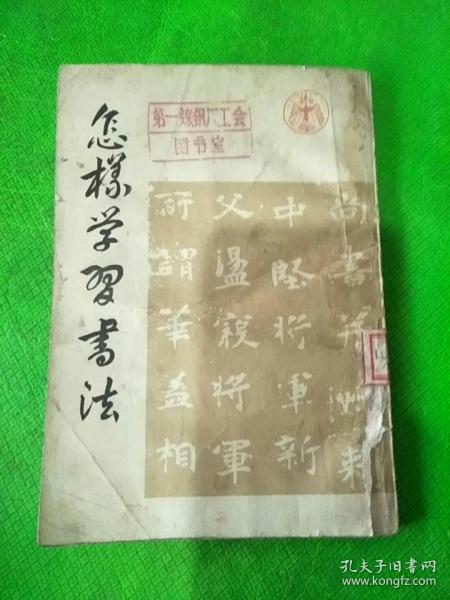 怎樣学習書法
第一炼钢厂工会
图书室
尚書并州刺
中堅将軍新
父盪寇将軍
所謂華益相
孔夫子旧书网
www.kongfz.com